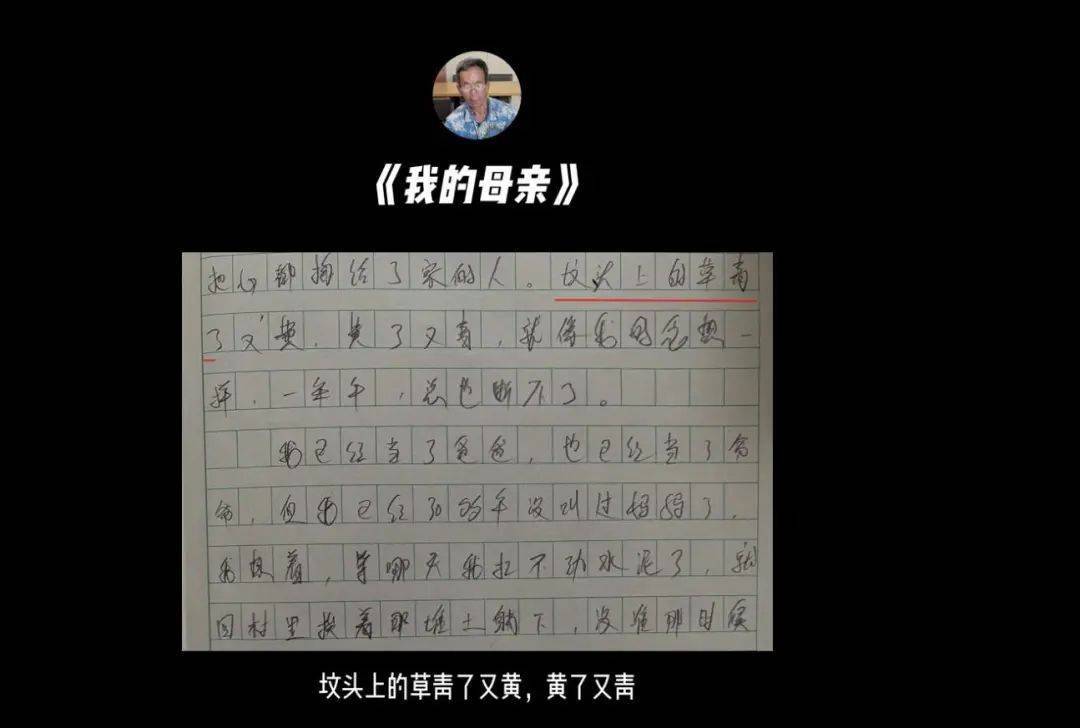 《我的母亲》
把心都掏给了家的人。坟头上的草青
了又黄,黄了又青,就像我的思想一
样,一年年,总也断不了。
我已经当了爸爸,也已经当了爷
爷,但我已经30多年没叫过妈妈了。
我想着,等哪天我扛不动水泥了,就
回村里挨着那堆土躺下,没准那时候
坟头上的草青了又黄,黄了又青